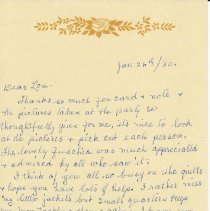 Jan 26th/80.
Dear Lou-
Thanks so much for card & note &
the pictures taken at the party so
thoughtfully given for me, it's nice to look
at the pictures & pick out each person.
The lovely fuschia was much appreciated
& admired by all who saw it.
I think of you all so busy on the quilts
& hope you have lots of help. I rather miss
my little jackets but small quarters helps